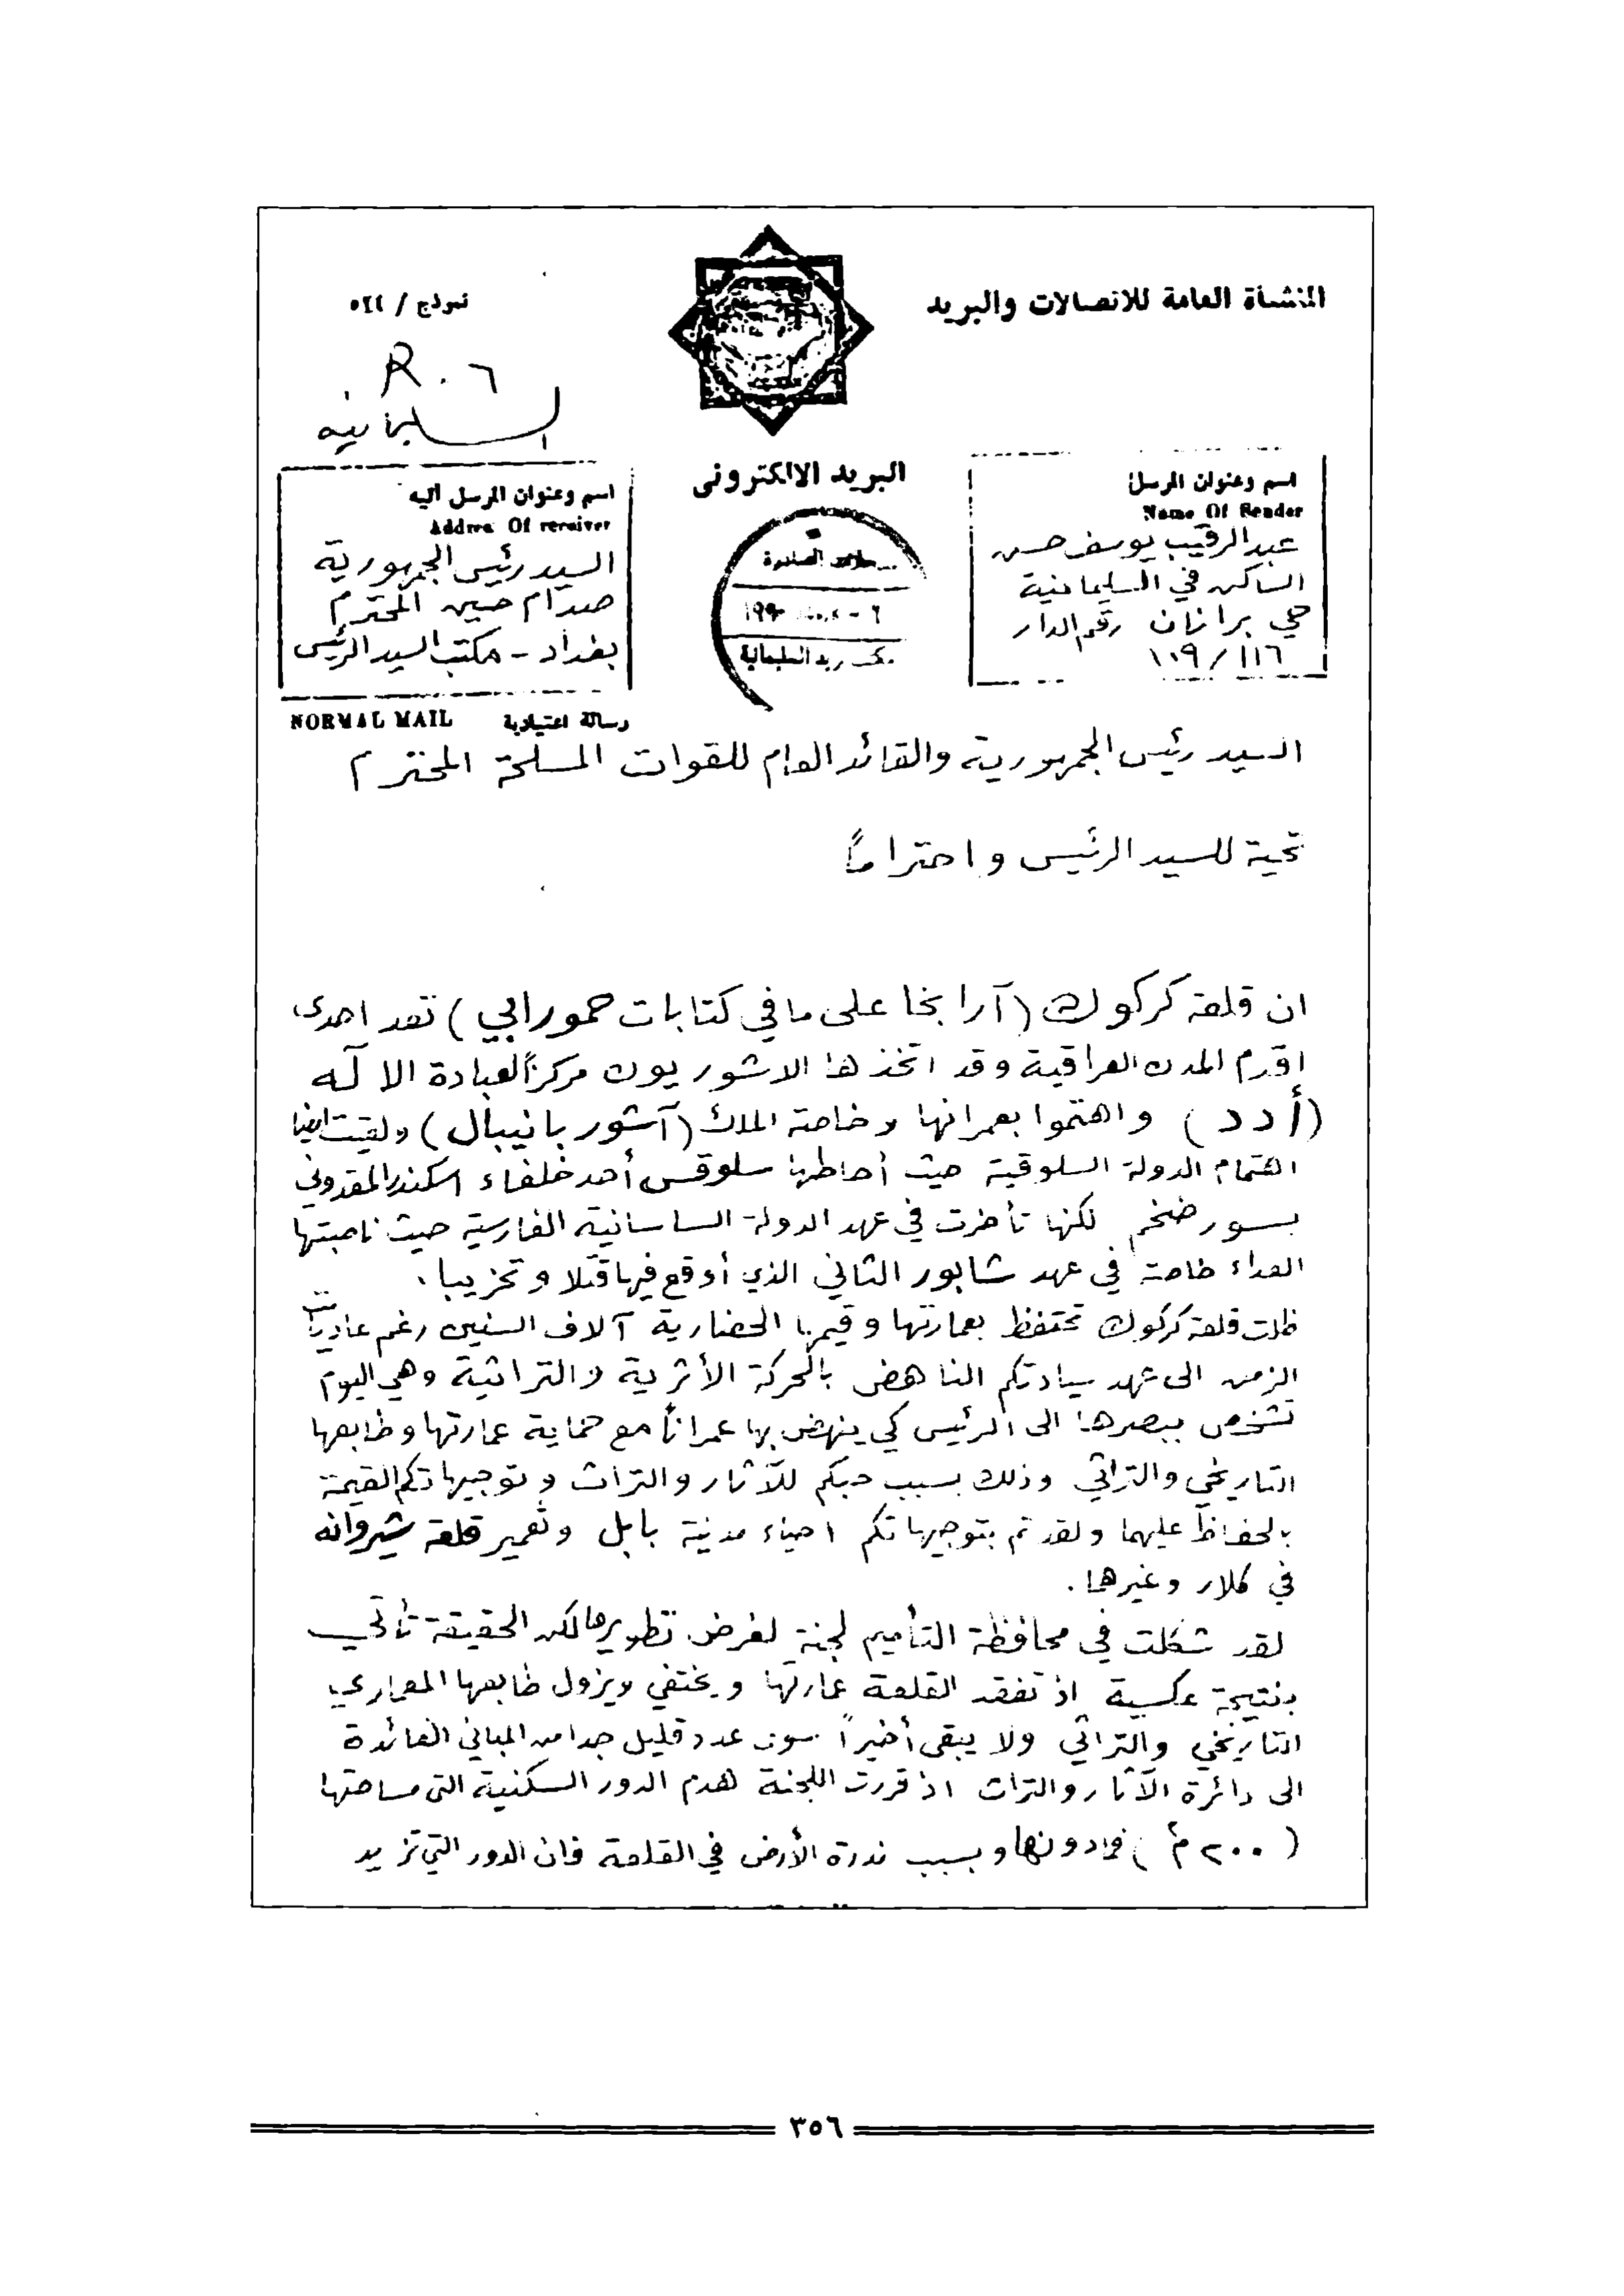 المنشأة العامة للاتصالات والبريد
نموذج / ٥٤٤
R.٦
السليمانيه
البريد الالكترونى
اسم وعنوان المرسل
Name Of Sender
عبدالرقيب يوسف حسن
الساكن في السليمانية
حي برانان رقم الدار
١٠٩/١١٦
ساعة الصدورة
١٩٩٠
مكتب بريد السليمانية
اسم وعنوان المرسل اليه
Addres Of receiver
السيد رئيس الجمهورية
صدام حسين المحترم
بغداد - مكتب السيد الرئيس
NORMAL MAIL رسالة اعتيادية
السيد رئيس الجمهورية والقائد العام للقوات المسلحة المحترم
تحية للسيد الرئيس واحتراماً
ان قلعة كركوك (آرابخا على ما في كتابات حمورابي) تعد احدى
اقدم المدن العراقية وقد اتخذها الاشوريون مركزاً لعبادة الاله
(أدد) واهتموا بعمرانها وخاصة الملك (آشور بانيبال) ولقيت ايضا
اهتمام الدولة السلوقية حيث أحاطها سلوقس أحد خلفاء اسكندر المقدوني
بسور ضخم لكنها تأخرت في عهد الدولة الساسانية الفارسية حيث ناصبتها
العداء خاصة في عهد شابور الثاني الذي أوقع فيها قتلا وتخريبا.
ظلت قلعة كركوك تحتفظ بعمارتها وقيمها الحضارية آلاف السنين رغم عاديات
الزمن الى عهد سيادتكم الناهض بالحركة الأثرية والتراثية وهي اليوم
تشخص ببصرها الى الرئيس كي ينهض بها عمراناً مع حماية عمارتها وطابعها
التاريخي والتراثي وذلك بسبب حبكم للآثار والتراث وتوجيهاتكم القيمة
بالحفاظ عليهما ولقد تم بتوجيهاتكم احياء مدينة بابل وتعمير قلعة شيروانه
في كلار وغيرها.
لقد شكلت في محافظة التأميم لجنة لغرض تطويرها لكن الحقيقة تأتي
بنتيجة عكسية اذ تفقد القلعة عمارتها ويختفي ويزول طابعها المعماري
التاريخي والتراثي ولا يبقى أخيراً سوى عدد قليل جدا من المباني العائدة
الى دائرة الآثار والتراث اذ قررت اللجنة هدم الدور السكنية التي مساحتها
(٢٠٠م٢) فما دونها وبسبب ندرة الأرض في القلعة فان الدور التي تزيد
٣٥٦